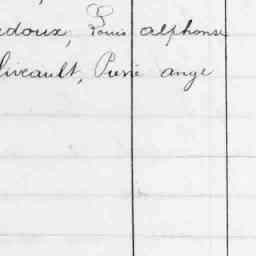 edoux, Louis alphonse
liveault, Pierre ange